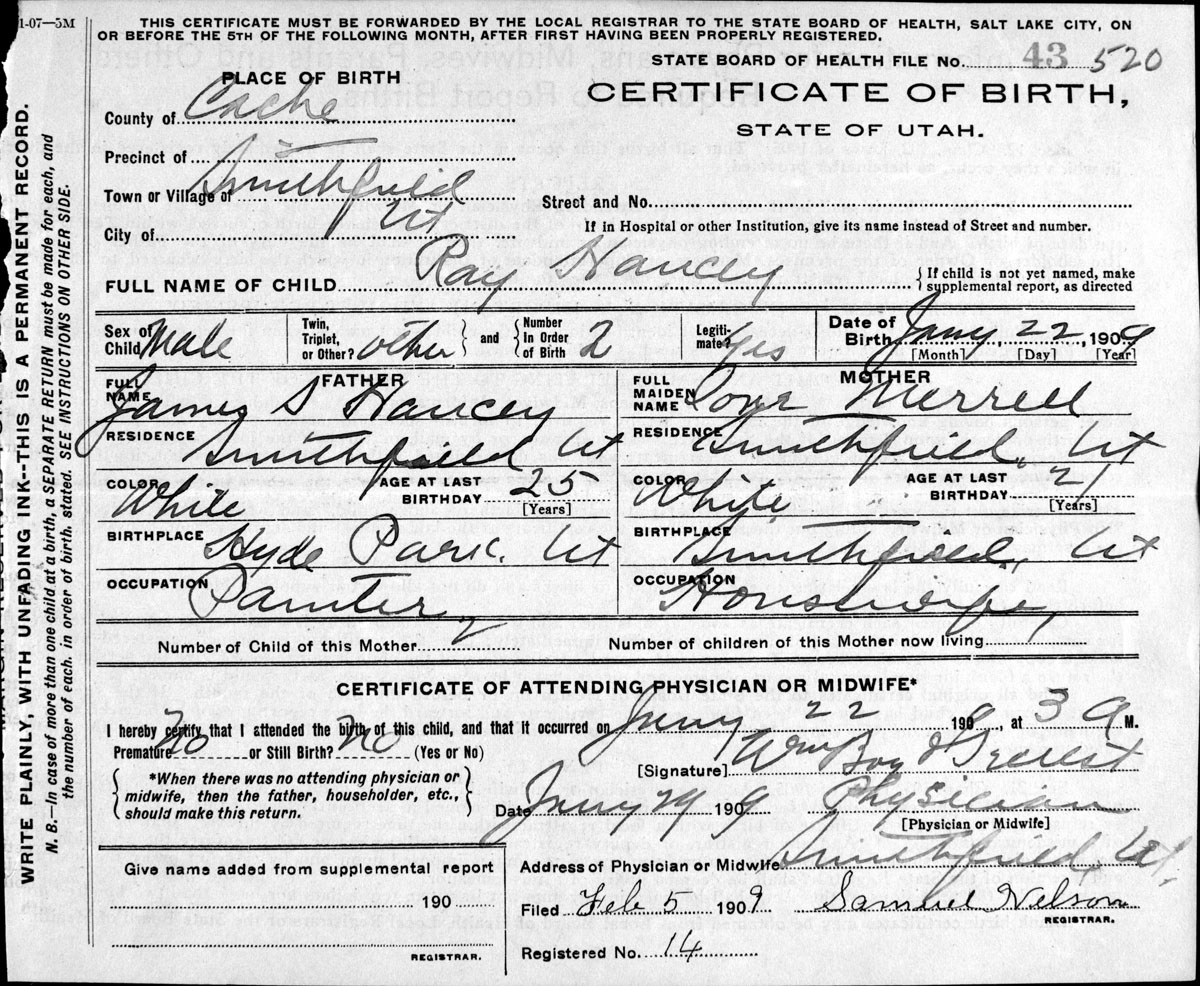 1-07—5M
THIS CERTIFICATE MUST BE FORWARDED BY THE LOCAL REGISTRAR TO THE STATE BOARD OF HEALTH, SALT LAKE CITY, ON
OR BEFORE THE 5TH OF THE FOLLOWING MONTH, AFTER FIRST HAVING BEEN PROPERLY REGISTERED.
STATE BOARD OF HEALTH FILE No. 43 520
PLACE OF BIRTH
CERTIFICATE OF BIRTH,
STATE OF UTAH.
County of Cache
Precinct of
Town or Village of Smithfield
Street and No.
City of Ut
If in Hospital or other Institution, give its name instead of Street and number.
FULL NAME OF CHILD Ray Hancey
{ If child is not yet named, make
supplemental report, as directed
Sex of Child Male
Twin, Triplet, or Other? other } and { Number In Order of Birth 2
Legiti-mate? Yes
Date of Birth Jany 22, 1909
[Month] [Day] [Year]
FATHER
FULL NAME James S Hancey
RESIDENCE Smithfield Ut
COLOR White AGE AT LAST BIRTHDAY 25
[Years]
BIRTHPLACE Hyde Park. Ut
OCCUPATION Painter
MOTHER
FULL MAIDEN NAME Merrell
RESIDENCE Smithfield, Ut
COLOR White AGE AT LAST BIRTHDAY 21
[Years]
BIRTHPLACE Smithfield, Ut
OCCUPATION Housewife
Number of Child of this Mother 2
Number of children of this Mother now living
CERTIFICATE OF ATTENDING PHYSICIAN OR MIDWIFE*
I hereby certify that I attended the birth of this child, and that it occurred on Jany 22 1909, at 3 a M.
Premature No or Still Birth? no (Yes or No)
{ *When there was no attending physician or
midwife, then the father, householder, etc.,
should make this return. }
[Signature] Wm
Date Jany 29 1909 Physician
[Physician or Midwife]
Address of Physician or Midwife Smithfield, Ut.
Give name added from supplemental report
190
REGISTRAR.
Filed Feb 5 1909 Samuel Nelson
REGISTRAR.
Registered No. 14
WRITE PLAINLY, WITH UNFADING INK--THIS IS A PERMANENT RECORD.
N. B.—In case of more than one child at a birth, a SEPARATE RETURN must be made for each, and
the number of each, in order of birth, stated. SEE INSTRUCTIONS ON OTHER SIDE.